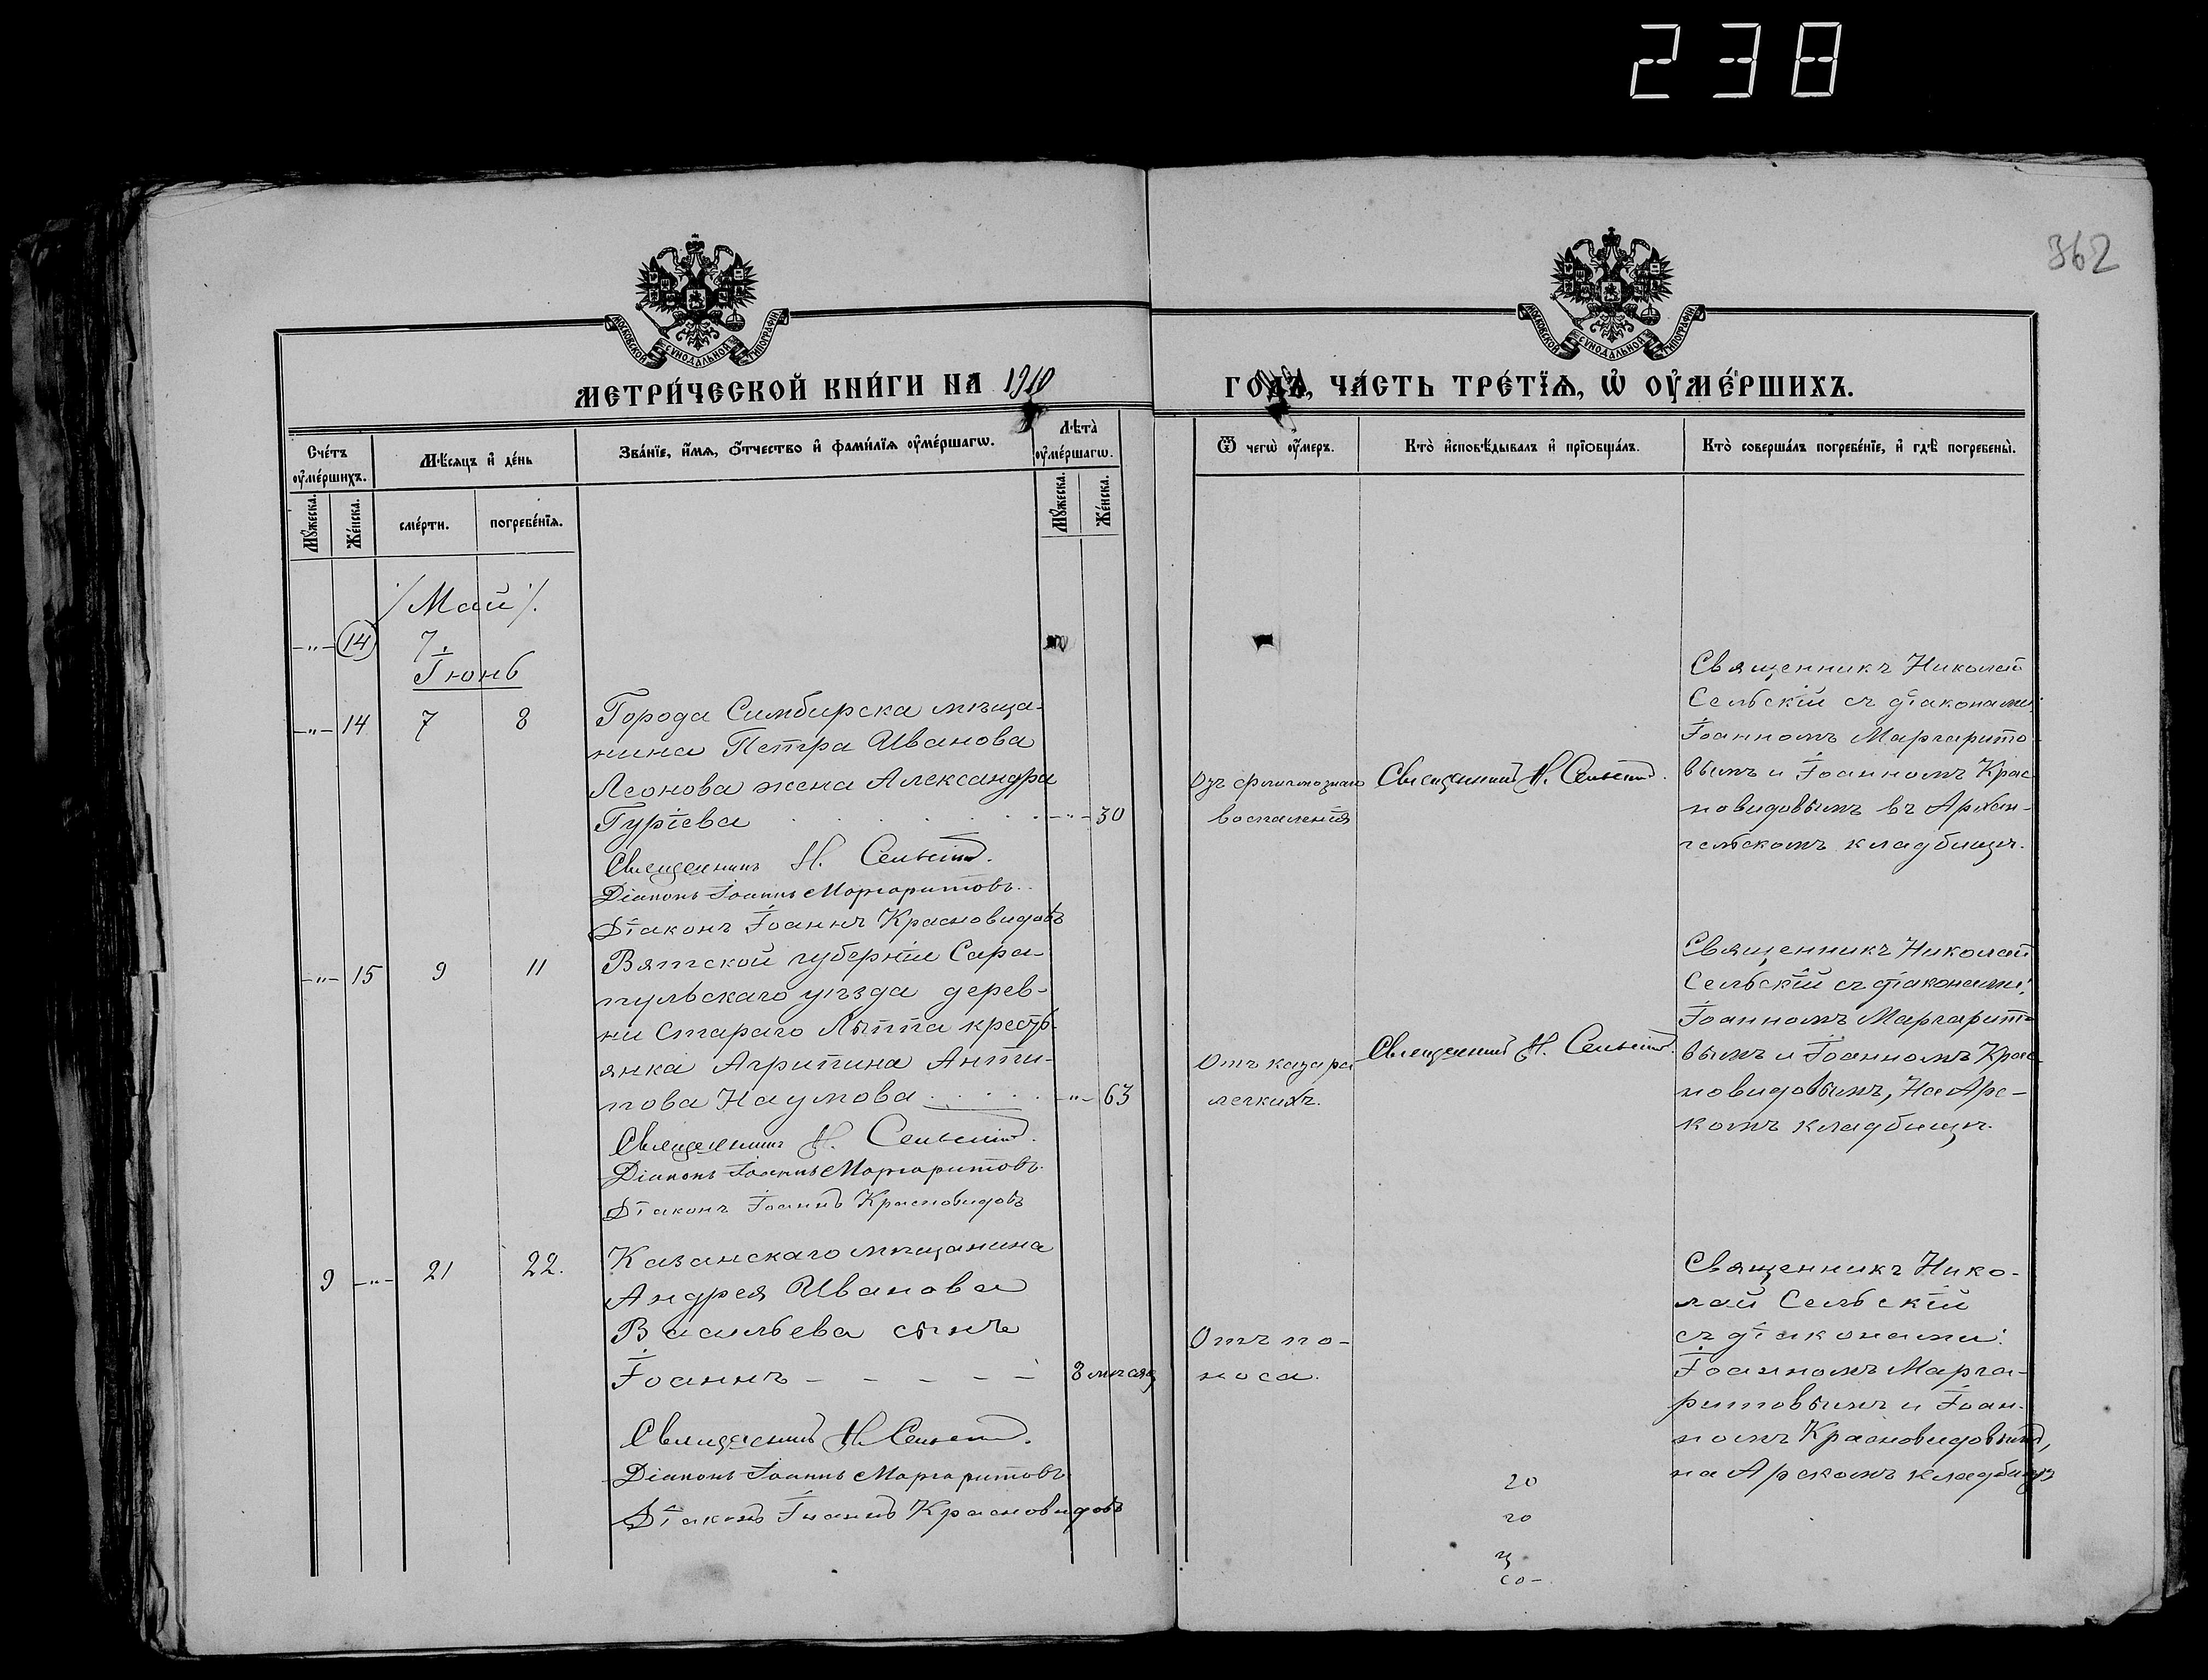 238
362
МОСКОВСКОЙ СѴНОДАЛЬНОЙ ТИПОГРАФІИ
МОСКОВСКОЙ СѴНОДАЛЬНОЙ ТИПОГРАФІИ
МЕТРИ́ЧЕСКОЙ КНИ́ГИ НА 1910 ГОДЪ, ЧА́СТЬ ТРЕ́ТЇѦ, Ѡ҆ ОУ҆МЕ́РШИХЪ.
Сче́тъ оу҆ме́ршихъ.
Мѣ́сяцъ и҆ де́нь
Зва́нїе, и҆́мѧ, о҆́тчество и҆ фами́лїѧ оу҆ме́ршагѡ.
Лѣта̀ оу҆ме́ршагѡ.
Ѿ чегѡ̀ оу҆́меръ.
Кто̀ и҆сповѣ́дывалъ и҆ прїѡбща́лъ.
Кто̀ соверша́лъ погребе́нїе, и҆ гдѣ̀ погребены̀.
Мꙋ́жеска.
Же́нска.
сме́рти.
погребе́нїѧ.
Мꙋ́жеска.
Же́нска.
/Май/.
-"- 14 7.
Іюнь
-"- 14 7 8
Города Симбирска мѣща-
нина Петра Иванова
Леонова жена Александра
Гуріева -"- 30
Священникъ Н. Сельскій.
Діаконъ Іоаннъ Маргаритовъ.
Діаконъ Іоаннъ Красновидовъ
воспаленія
Священникъ Н. Сельскій.
Священникъ Николай
Сельскій съ діаконами:
Іоанномъ Маргарито-
вымъ и Іоанномъ Крас
новидовымъ въ Архан-
гельскомъ кладбищѣ.
-"- 15 9 11
Вятской губерніи Сара-
пульскаго уѣзда дерев-
ни Стараго крестья-
янка Агрипина Анти-
пова Наумова -"- 63
Священникъ Н. Сельскій.
Діаконъ Іоаннъ Маргаритовъ.
Діаконъ Іоаннъ Красновидовъ
Отъ
легкихъ.
Священникъ Н. Сельскій.
Священникъ Николай
Сельскій съ діаконами:
Іоанномъ Маргарито
вымъ и Іоанномъ Крас
новидовымъ, На Арс-
комъ кладбищѣ.
9 -"- 21 22.
Казанскаго мѣщанина
Андрея Иванова
Васильева сынъ
Іоаннъ - - - - - 3 мѣсяц
Священникъ Н. Сельскій.
Діаконъ Іоаннъ Маргаритовъ.
Діаконъ Іоаннъ Красновидовъ
Отъ по-
носа.
Священникъ Нико-
лай Сельскій
съ діаконами:
Іоанномъ Марга-
ритовымъ и Іоан-
номъ Красновидовымъ,
на Арскомъ кладбищѣ
20
20